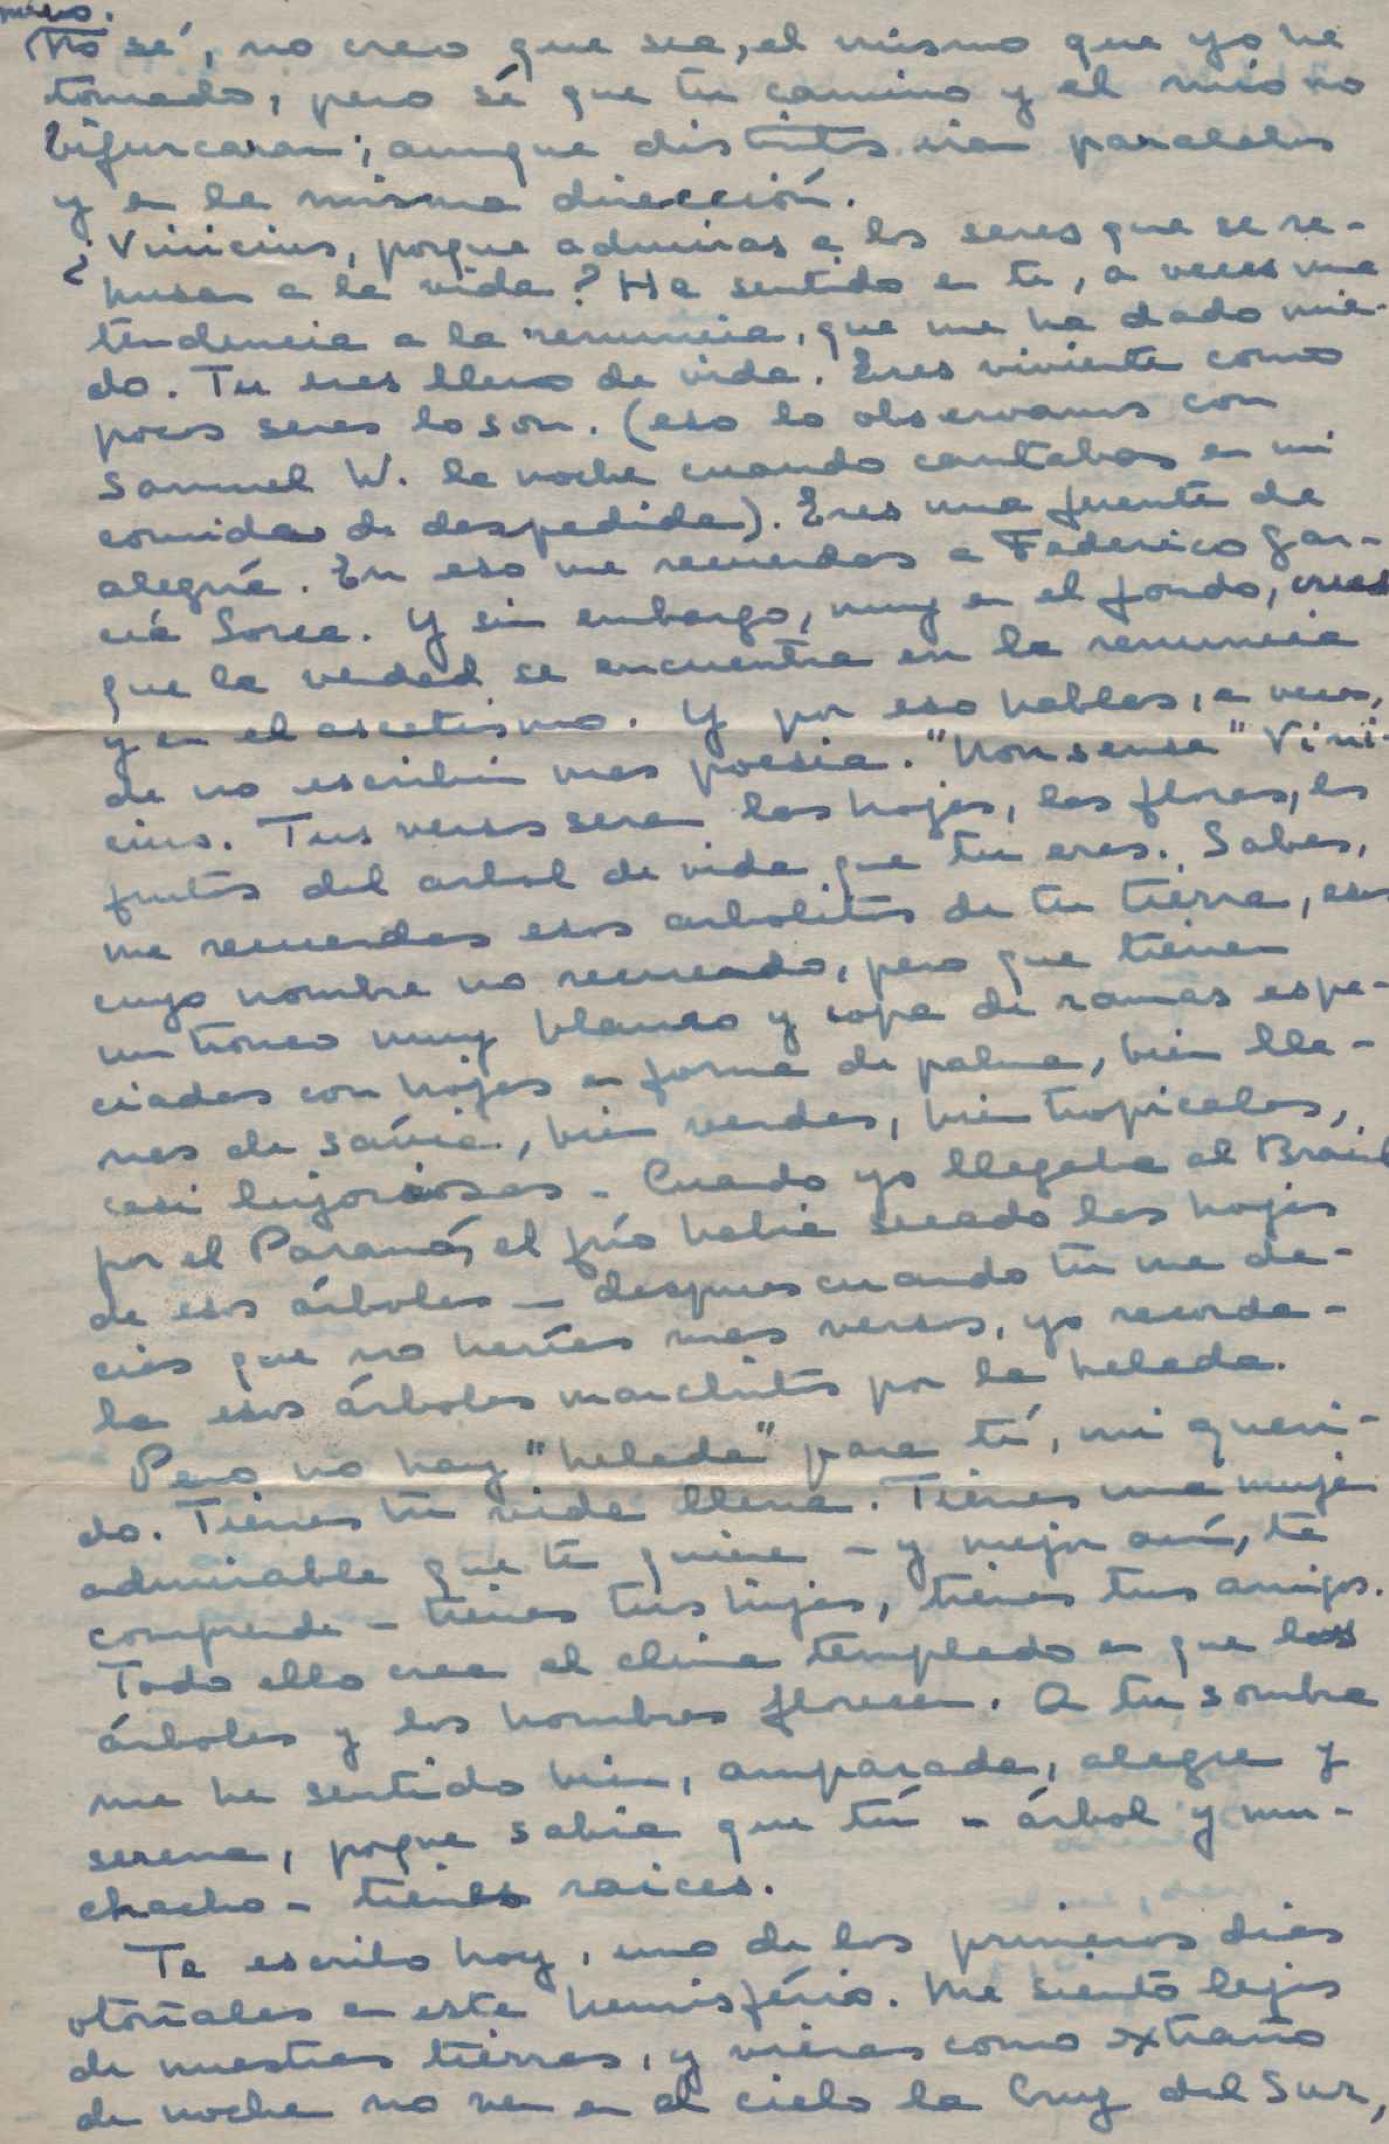 No sé, no creo que sea, el mismo que yo he
tomado, pero sé que tu camino y el mio no
bifurcaran; aunque distintos iran paralelos
y en la misma dirección.
¿Vinicius, porque admiras a los seres que se re-
husan a la vida? He sentido en ti, a veces una
tendencia a la renuncia, que me ha dado mie-
do. Tu eres lleno de vida. Eres viviente como
pocos seres lo son. (eso lo observamos con
Samuel W. la noche cuando cantabas en mi
comida de despedida). Eres una fuente de
alegría. En eso me recuerdas a Federico Gar-
cía Lorca. Y sin embargo, muy en el fondo, crees
que la verdad se encuentra en la renuncia
y en el ascetismo. Y por eso hablas, a veces,
de no escribir mas poesia. "Nonsense" Vini-
cius. Tus versos seran las hojas, las flores, los
frutos del arbol de vida que tu eres. Sabes,
me recuerdas esos arbolitos de tu tierra, esos
cuyo nombre no recuerdo, pero que tienen
un tronco muy blanco y copa de ramas espa-
ciadas con hojas en forma de palma, bien lle-
nas de sávia, bien verdes, bien tropicales,
casi lujoriosas - Cuando yo llegaba al Brasil
por el Paraná, el frío habia secado las hojas
de esos árboles - despues cuando tu me de-
cias que no harías mas versos, yo recorda-
ba esos árboles marchitos por la helada.
Pero no hay "helada" para tí, mi queri-
do. Tienes tu vida llena. Tienes una mujer
admirable que te quiere - y mejor aún, te
comprende - tienes tus hijos, tienes tus amigos.
Todo ello crea el clima templado en que los
árboles y los hombres florecen. A tu sombra
me he sentido bien, amparada, alegre y
serena, porque sabia que tú - árbol y mu-
chacho - tienes raices.
Te escribo hoy, uno de los primeros dias
otoñales en este hemisfério. Me siento lejos
de nuestras tierras, y vieras como extraño
de noche no ver en el cielo la Cruz del Sur,